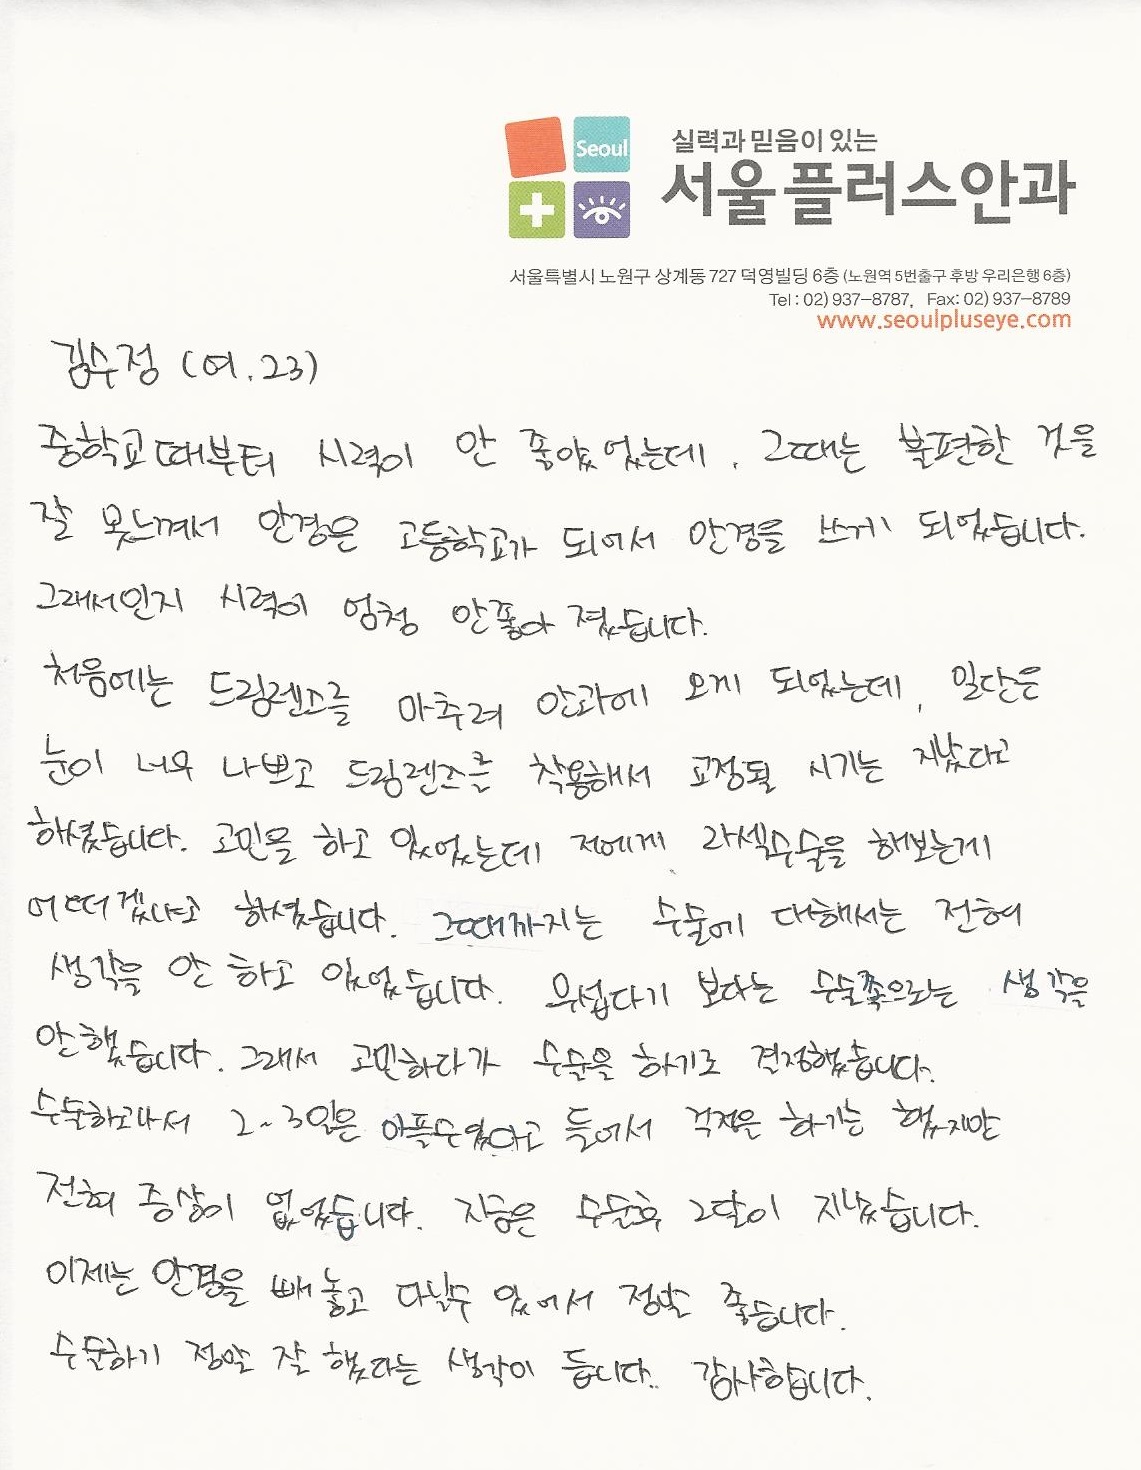 Seoul
실력과 믿음이 있는
서울플러스안과
서울특별시 노원구 상계동 727 덕영빌딩 6층 (노원역 5번출구 후방 우리은행 6층)
Tel : 02) 937-8787, Fax: 02) 937-8789
www.seoulpluseye.com
김수정 (여. 23)
중학교때부터 시력이 안 좋았었는데, 그때는 불편한 것을
잘 못느껴서 안경은 고등학교가 되어서 안경을 쓰게 되었습니다.
그래서인지 시력이 엄청 안좋아 졌습니다.
처음에는 드림렌즈를 마추려 안과에 오게 되었는데, 일단은
눈이 너무 나쁘고 드림렌즈를 착용해서 교정될 시기는 지났다고
하셨습니다. 고민을 하고 있었는데 저에게 라섹수술을 해보는게
어떠겠냐고 하셨습니다. 그때까지는 수술에 대해서는 전혀
생각을 안 하고 있었습니다. 무섭다기 보다는 수술쪽으로는 생각을
안했습니다. 그래서 고민하다가 수술을 하기로 결정했습니다.
수술하고나서 2~3일은 아플수있다고 들어서 걱정은 하기는 했지만
전혀 증상이 없었습니다. 지금은 수술후 2달이 지났습니다.
이제는 안경을 빼놓고 다닐수 있어서 정말 좋습니다.
수술하기 정말 잘 했다는 생각이 듭니다. 감사합니다.